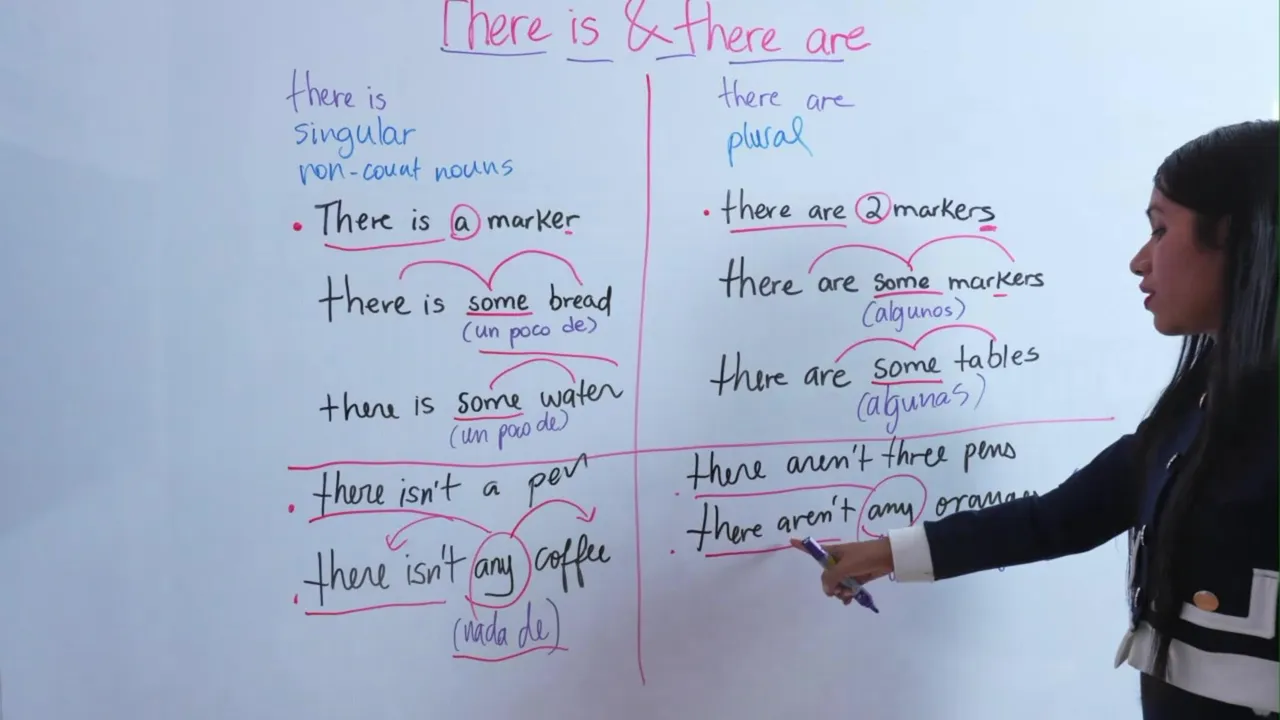 There is & there are
there is
singular
non-count nouns
• There is a marker
there is some bread
(un poco de)
there is some water
(un poco de)
• there isn't a pen
• there isn't any coffee
(nada de)
there are
plural
• there are 2 markers
there are some markers
(algunos)
there are some tables
(algunas)
• there aren't three pens
• there aren't any